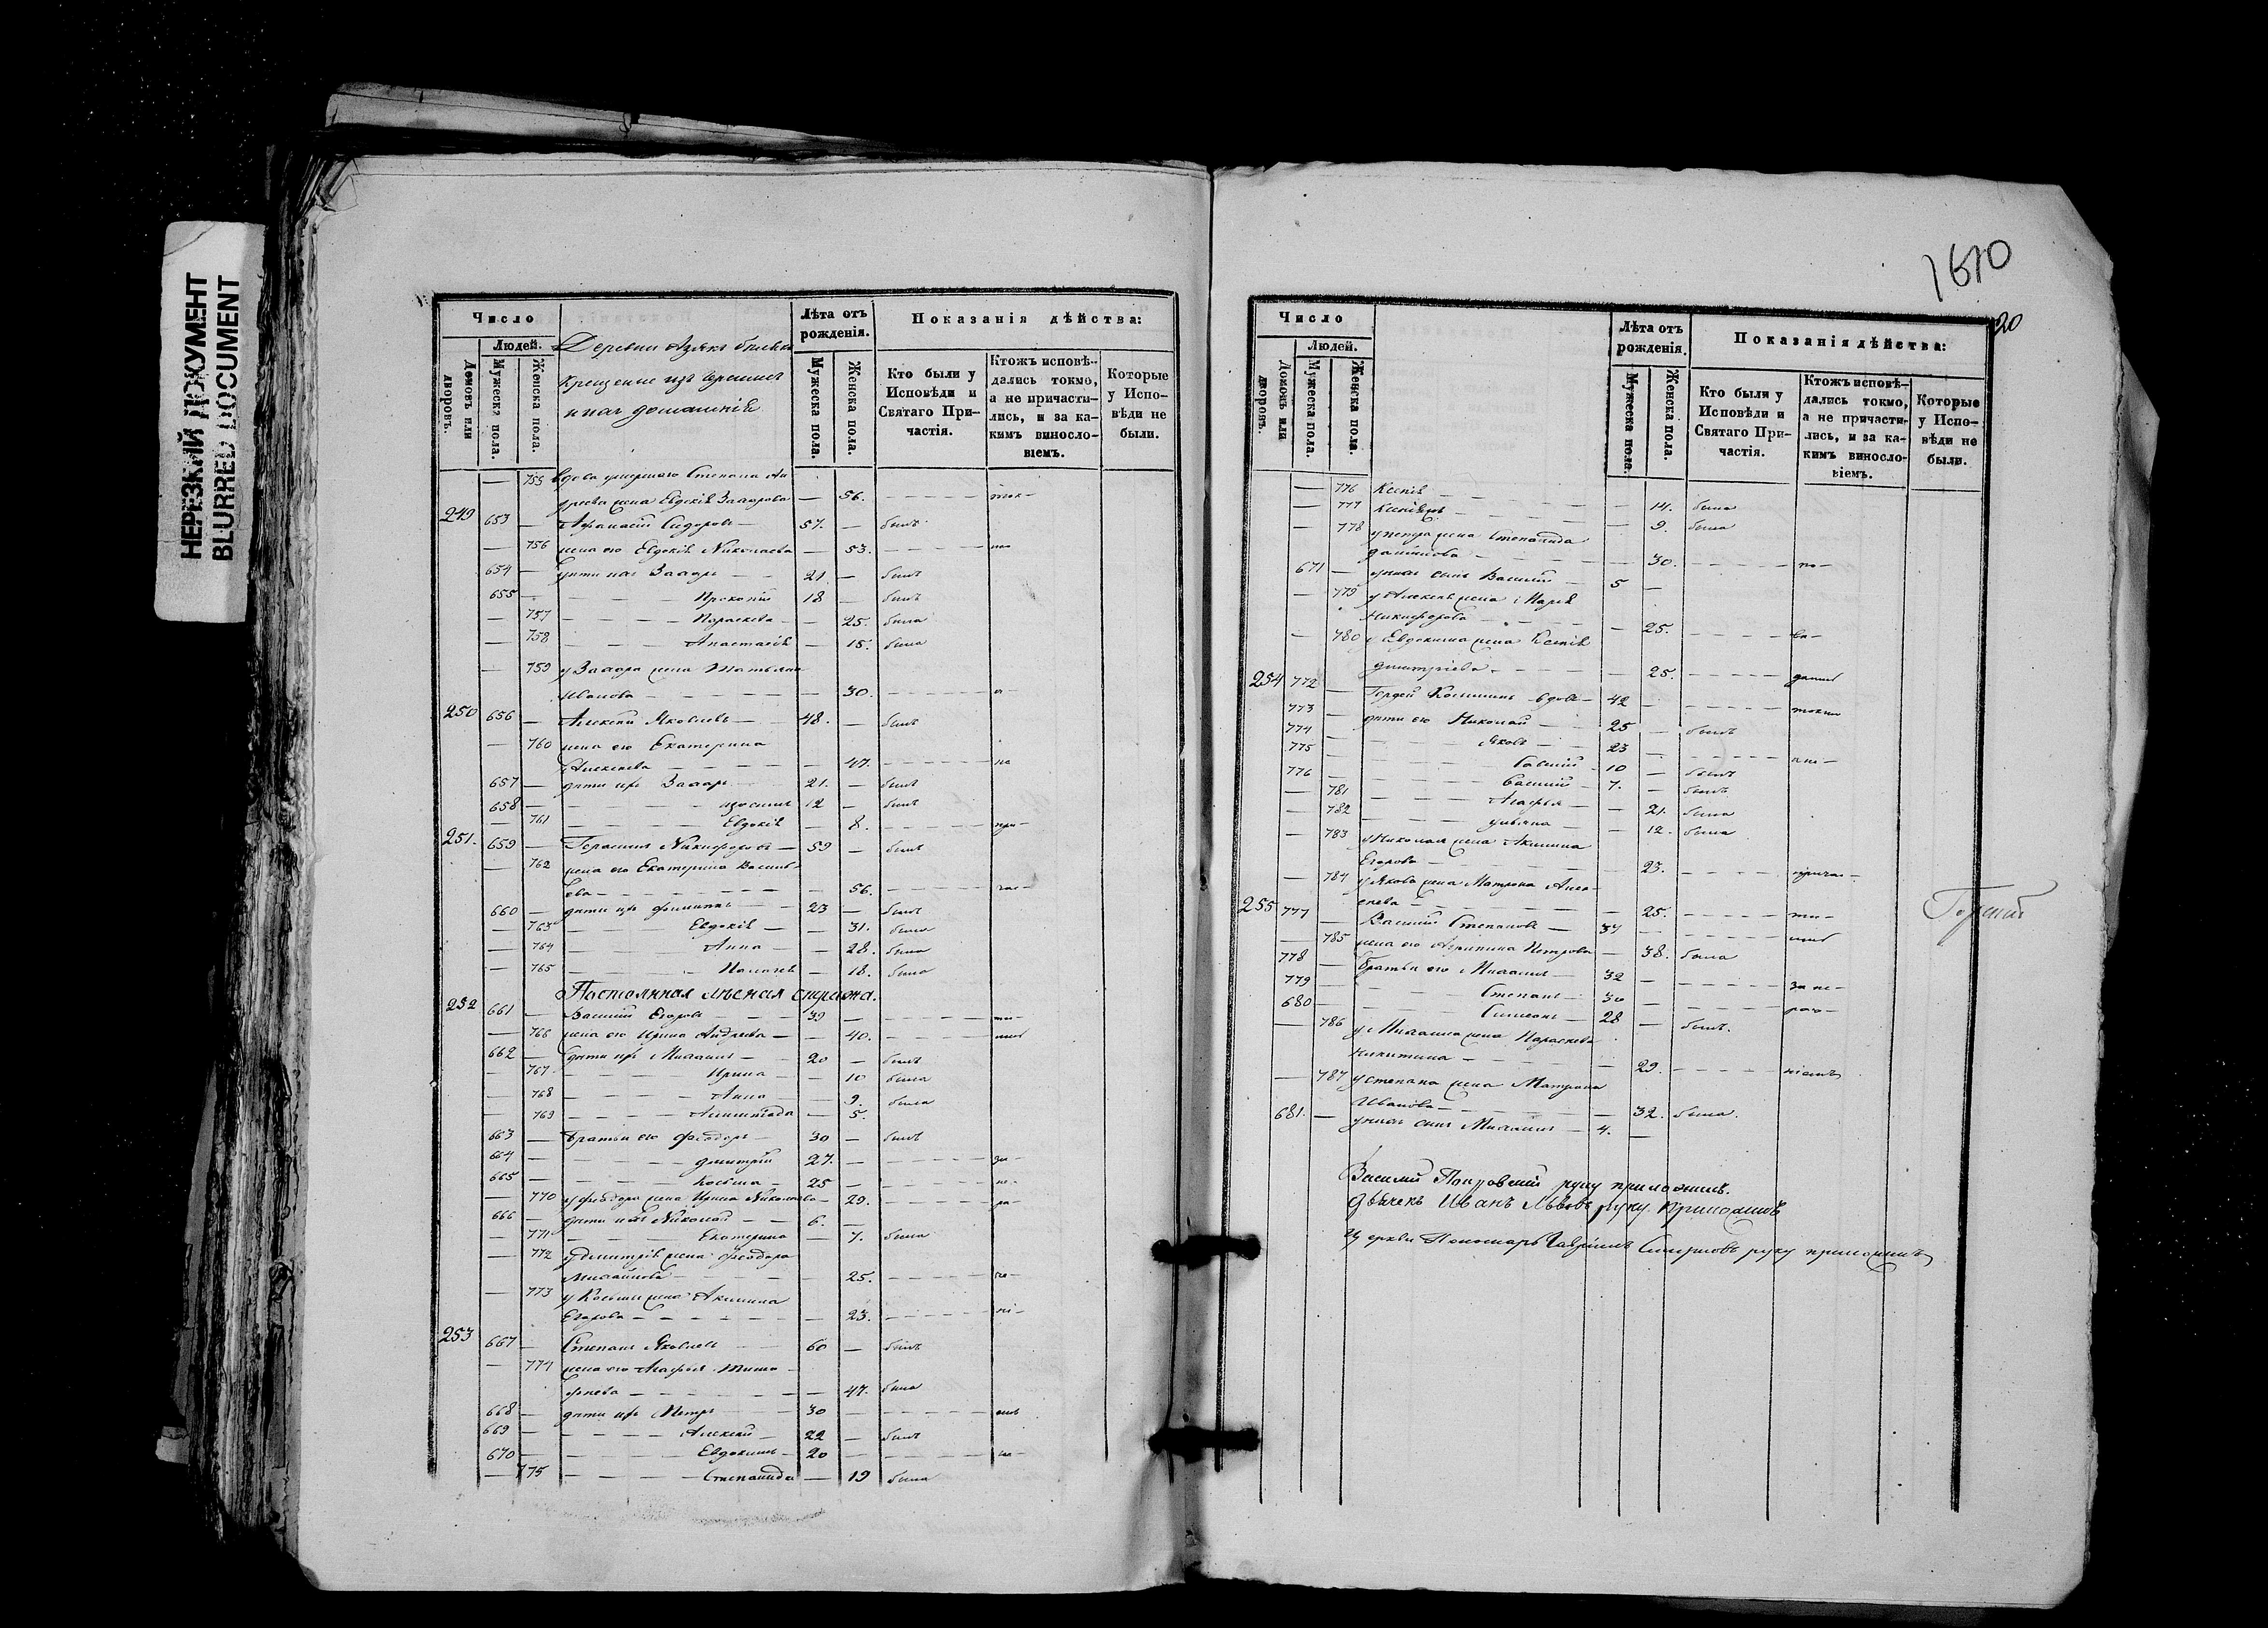 НЕРЕЗКИЙ ДОКУМЕНТ
BLURRED DOCUMENT
Число
Людей.
Домовъ или дворовъ.
Мужеска пола.
Женска пола.
Деревни
крещение изъ
Лѣта отъ рожденія.
Мужеска пола.
Женска пола.
Показанія дѣйства:
Кто были у Исповѣди и Святаго При-частія.
Ктожъ исповѣ-дались токмо, а не причасти-лись, и за ка-кимъ виносло-віемъ.
Которые у Испо-вѣди не были.
— 755 вдова умершаго Степана Ан
дреева жена Евдокія Захарова — 56. — ток-
249 653 — Афанасій Сидоровъ — 57. — былъ
— 756 жена его Евдокія Николаева — 53. —
654 — дѣти ихъ Захаръ — 21 — былъ
655 — Прокопій 18 — былъ
— 757 — Параскева — 25. была
— 758 — Анастасія — 15. была
— 759 у Захара жена Татьяна
Иванова — 30. —
250 656 — Алексѣй Яковлевъ — 48. — былъ
— 760 жена его Екатерина
Алексѣева — 47. — не
657 — дѣти ихъ Захаръ 21. — былъ
658 — 12 — былъ
— 761 — Евдокія — 8. — при-
251. 659 — Герасимъ Никифоровъ — 59 — былъ
— 762 жена его Екатерина Василь
ева — 56. — час-
660 — дѣти ихъ Филиппъ 23 — былъ
— 763 — Евдокія — 31. была
— 764 — Анна — 28. была
— 765 — Пелагея — 18. была
Постоянная лѣсная стража.
252 661 — Василій Егоровъ 39 — ти-
— 766 жена его Ирина Андреева — 40. —
662 — дѣти ихъ Михаилъ — 20 — былъ
— 767 — Ирина — 10 была
— 768 — Анна — 9. была
— 769 — 5.
663 — братья его Феодоръ — 30 — былъ
664 — Димитрій 27. — за-
665 — Косьма — 25 — не-
— 770 у Феодора жена Ирина Николаева — 29. — ра-
666 — дѣти ихъ Николай — 6. —
— 771 — Екатерина — 7. была
— 772 у Димитрія жена Феодора
Михайлова — 25. —
— 773 у Косьмы жена Акилина
Егорова — 23. — ні-
253 667 — Степанъ Яковлевъ 60 — былъ
— 774 жена его Агафья Тимо-
феева — 47. была
668 — дѣти ихъ Петръ 30 — емъ
669 — Алексѣй — 22 — былъ
670 — Евдокимъ — 20 —
— 775 — Степанида — 19 была
1610
20
Число
Людей.
Домовъ или дворовъ.
Мужеска пола.
Женска пола.
Лѣта отъ рожденія.
Мужеска пола.
Женска пола.
Показанія дѣйства:
Кто были у Исповѣди и Святаго При-частія.
Ктожъ исповѣ-дались токмо, а не причасти-лись, и за ка-кимъ виносло-віемъ.
Которые у Испо-вѣди не были.
— 776 Ксенія — 14. была
— 777 — 9. была
— 778 у Петра жена Степанида
Данилова — 30. — по-
671 — у нихъ сынъ Василій — 5 —
— 779 у Алексѣя жена Марія
Никифорова — 25. —
— 780 у Евдокима жена Ксенія
Димитріева — 25. —
254 772 — Гордей Косьминъ вдовъ — 42 — токмо
773 — дѣти его Николай — 25 — былъ
774 — Яковъ — 23 —
775 — 10 — былъ
776 — Василій — 7. — былъ
— 781 — Агафья — 21. была
— 782 — Ульяна — 12. была
— 783 у Николая жена Акилина
Егорова — 23. — причас-
— 784 у Якова жена Матрона Алек-
сеева — 25. — ти-
255 777 — Василій Степановъ — 37 —
— 785 жена его Агрипина Петрова — 38. была
778 — братья его Михаилъ — 32 — за не-
779 — Степанъ — 30 — рас-
680 — Симеонъ — 28 — былъ.
— 786 у Михаила жена Параскева
Никитина — 29. — ніемъ
— 787 у Степана жена Матрона
Иванова — 32. была.
681. — у нихъ сынъ Михаилъ — 4. —
Василій Покровскій руку приложилъ.
Дьячекъ Иванъ Львовъ руку приложилъ
Церкви Пономарь Гавріилъ Смирновъ руку приложилъ